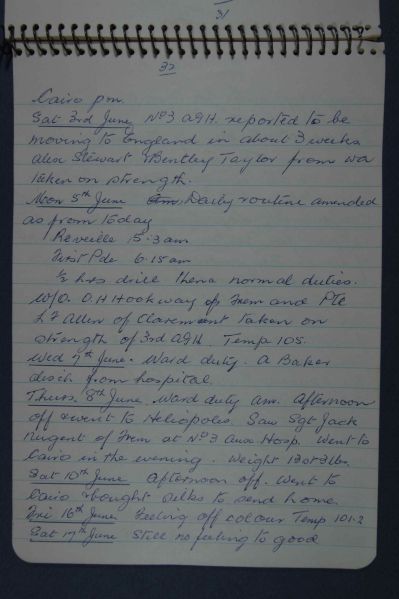 31
32
Cairo pm.
Sat 3rd June No 3 AGH. reported to be
moving to England in about 3 weeks
Alex Stewart & Bentley Taylor from WA
taken on strength.
Mon 5th June Daily routine amended
as from today
Reveille 5.30am
First Pde 6.15am
½ hrs drill then normal duties.
W/O. O.H Hookway of Frem and Pte
L F Allen of Claremont taken on
strength of 3rd AGH. Temp 105.
Wed 7th June. Ward duty. A Baker
disch from hospital.
Thurs. 8th June Ward duty am. Afternoon
off & went to Heliopolis. Saw Sgt Jack
Nugent of Frem at No 3 Aux Hosp. Went to
Cairo in the evening. Weight 12st 3lbs.
Sat 10th June Afternoon off. Went to
Cairo & bought silks to send home.
Fri 16th June Feeling off colour Temp 101.2
Sat 17th June Still no feeling to good